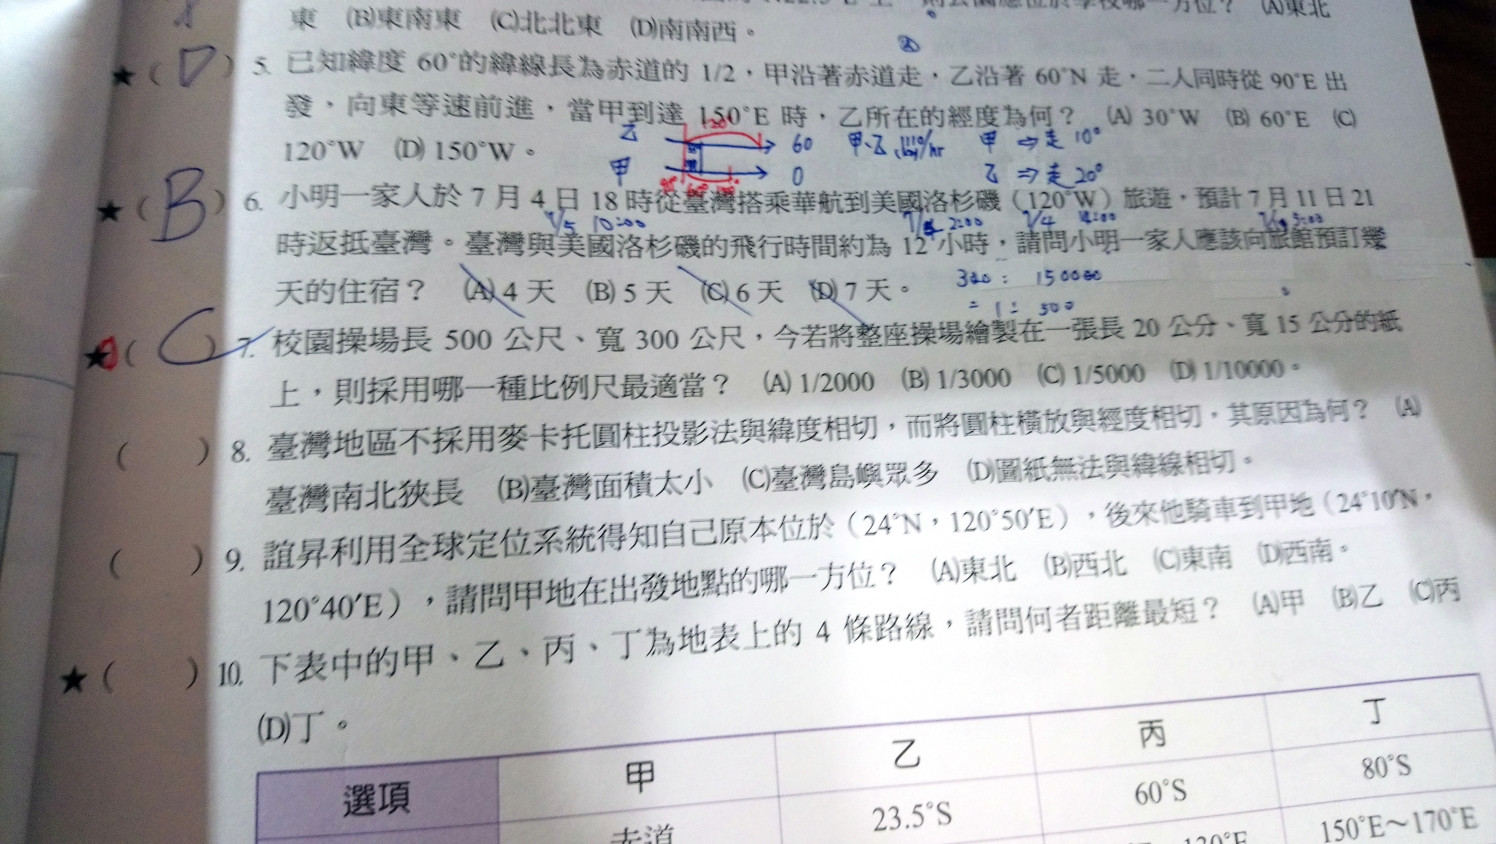 東 (B)東南東 (C)北北東 (D)南南西。
★( D ) 5. 已知緯度 60°的緯線長為赤道的 1/2,甲沿著赤道走,乙沿著 60°N 走,二人同時從 90°E 出
發,向東等速前進,當甲到達 150°E 時,乙所在的經度為何? (A) 30°W (B) 60°E (C)
120°W (D) 150°W。
乙 60 甲、乙 甲 ⇒ 走 10°
甲 0 乙 ⇒ 走 20°
★( B ) 6. 小明一家人於 7 月 4 日 18 時從臺灣搭乘華航到美國洛杉磯(120°W)旅遊,預計 7 月 11 日 21
7/5 10:00 2:00 7/4
時返抵臺灣。臺灣與美國洛杉磯的飛行時間約為 12 小時,請問小明一家人應該向旅館預訂幾
天的住宿? (A) 4 天 (B) 5 天 (C) 6 天 (D) 7 天。
= 1 : 500
★( C ) 7. 校園操場長 500 公尺、寬 300 公尺,今若將整座操場繪製在一張長 20 公分、寬 15 公分的紙
上,則採用哪一種比例尺最適當? (A) 1/2000 (B) 1/3000 (C) 1/5000 (D) 1/10000。
( ) 8. 臺灣地區不採用麥卡托圓柱投影法與緯度相切,而將圓柱橫放與經度相切,其原因為何? (A)
臺灣南北狹長 (B)臺灣面積太小 (C)臺灣島嶼眾多 (D)圖紙無法與緯線相切。
( ) 9. 誼昇利用全球定位系統得知自己原本位於(24°N,120°50′E),後來他騎車到甲地(24°10′N,
120°40′E),請問甲地在出發地點的哪一方位? (A)東北 (B)西北 (C)東南 (D)西南。
★( ) 10. 下表中的甲、乙、丙、丁為地表上的 4 條路線,請問何者距離最短? (A)甲 (B)乙 (C)丙
(D)丁。
選項 甲 乙 丙 丁
赤道 23.5°S 60°S 80°S
150°E～170°E